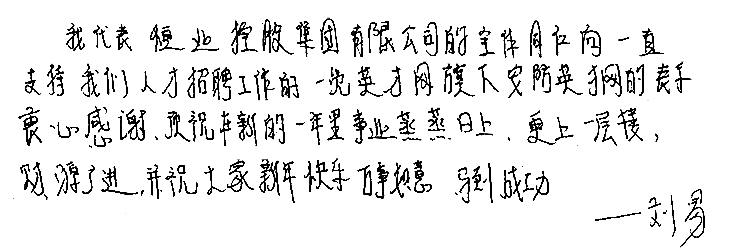 我代表恒业控股集团有限公司的全体同仁向一直
支持我们人才招聘工作的一览英才网旗下安防英才网的表示
衷心感谢、预祝在新的一年里事业蒸蒸日上、更上一层楼，
财源广进，并祝大家新年快乐 万事如意 马到成功
——刘易